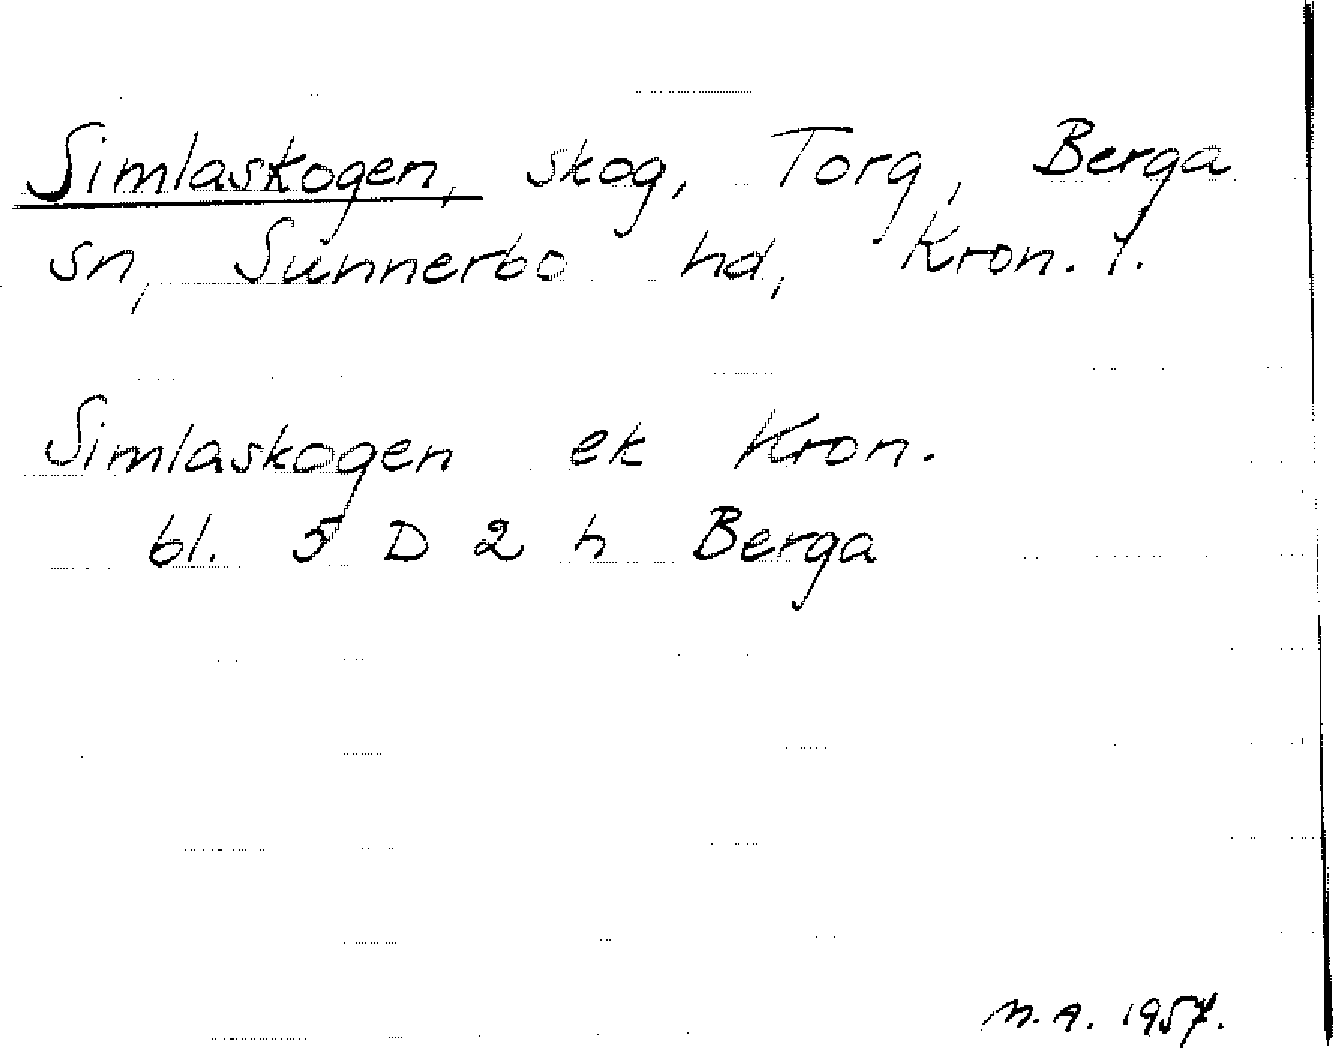 Simlaskogen, skog, Torg, Berga
sn, Sunnerbo hd, Kron. l.
Simlaskogen ek Kron.
bl. 5 D 2 h Berga
M.A. 1957.